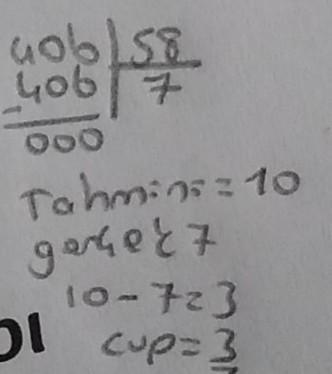 406 | 58
- 406 | 7
000
Tahmini = 10
gerçek 7
10 - 7 = 3
cvp = 3